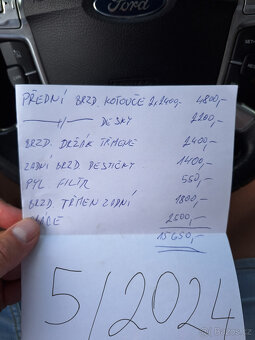 Ford
PŘEDNÍ BRZD. KOTOUČE 2x2400,- 4800,-
—//— DESKY 2200,-
BRZD. DRŽÁK TŘMENE 2400,-
ZADNÍ BRZD DESTIČKY 1400,-
PYL FILTR 550,-
BRZD TŘMEN ZADNÍ 1800,-
PRÁCE 2500,-
15650,-
5/2024